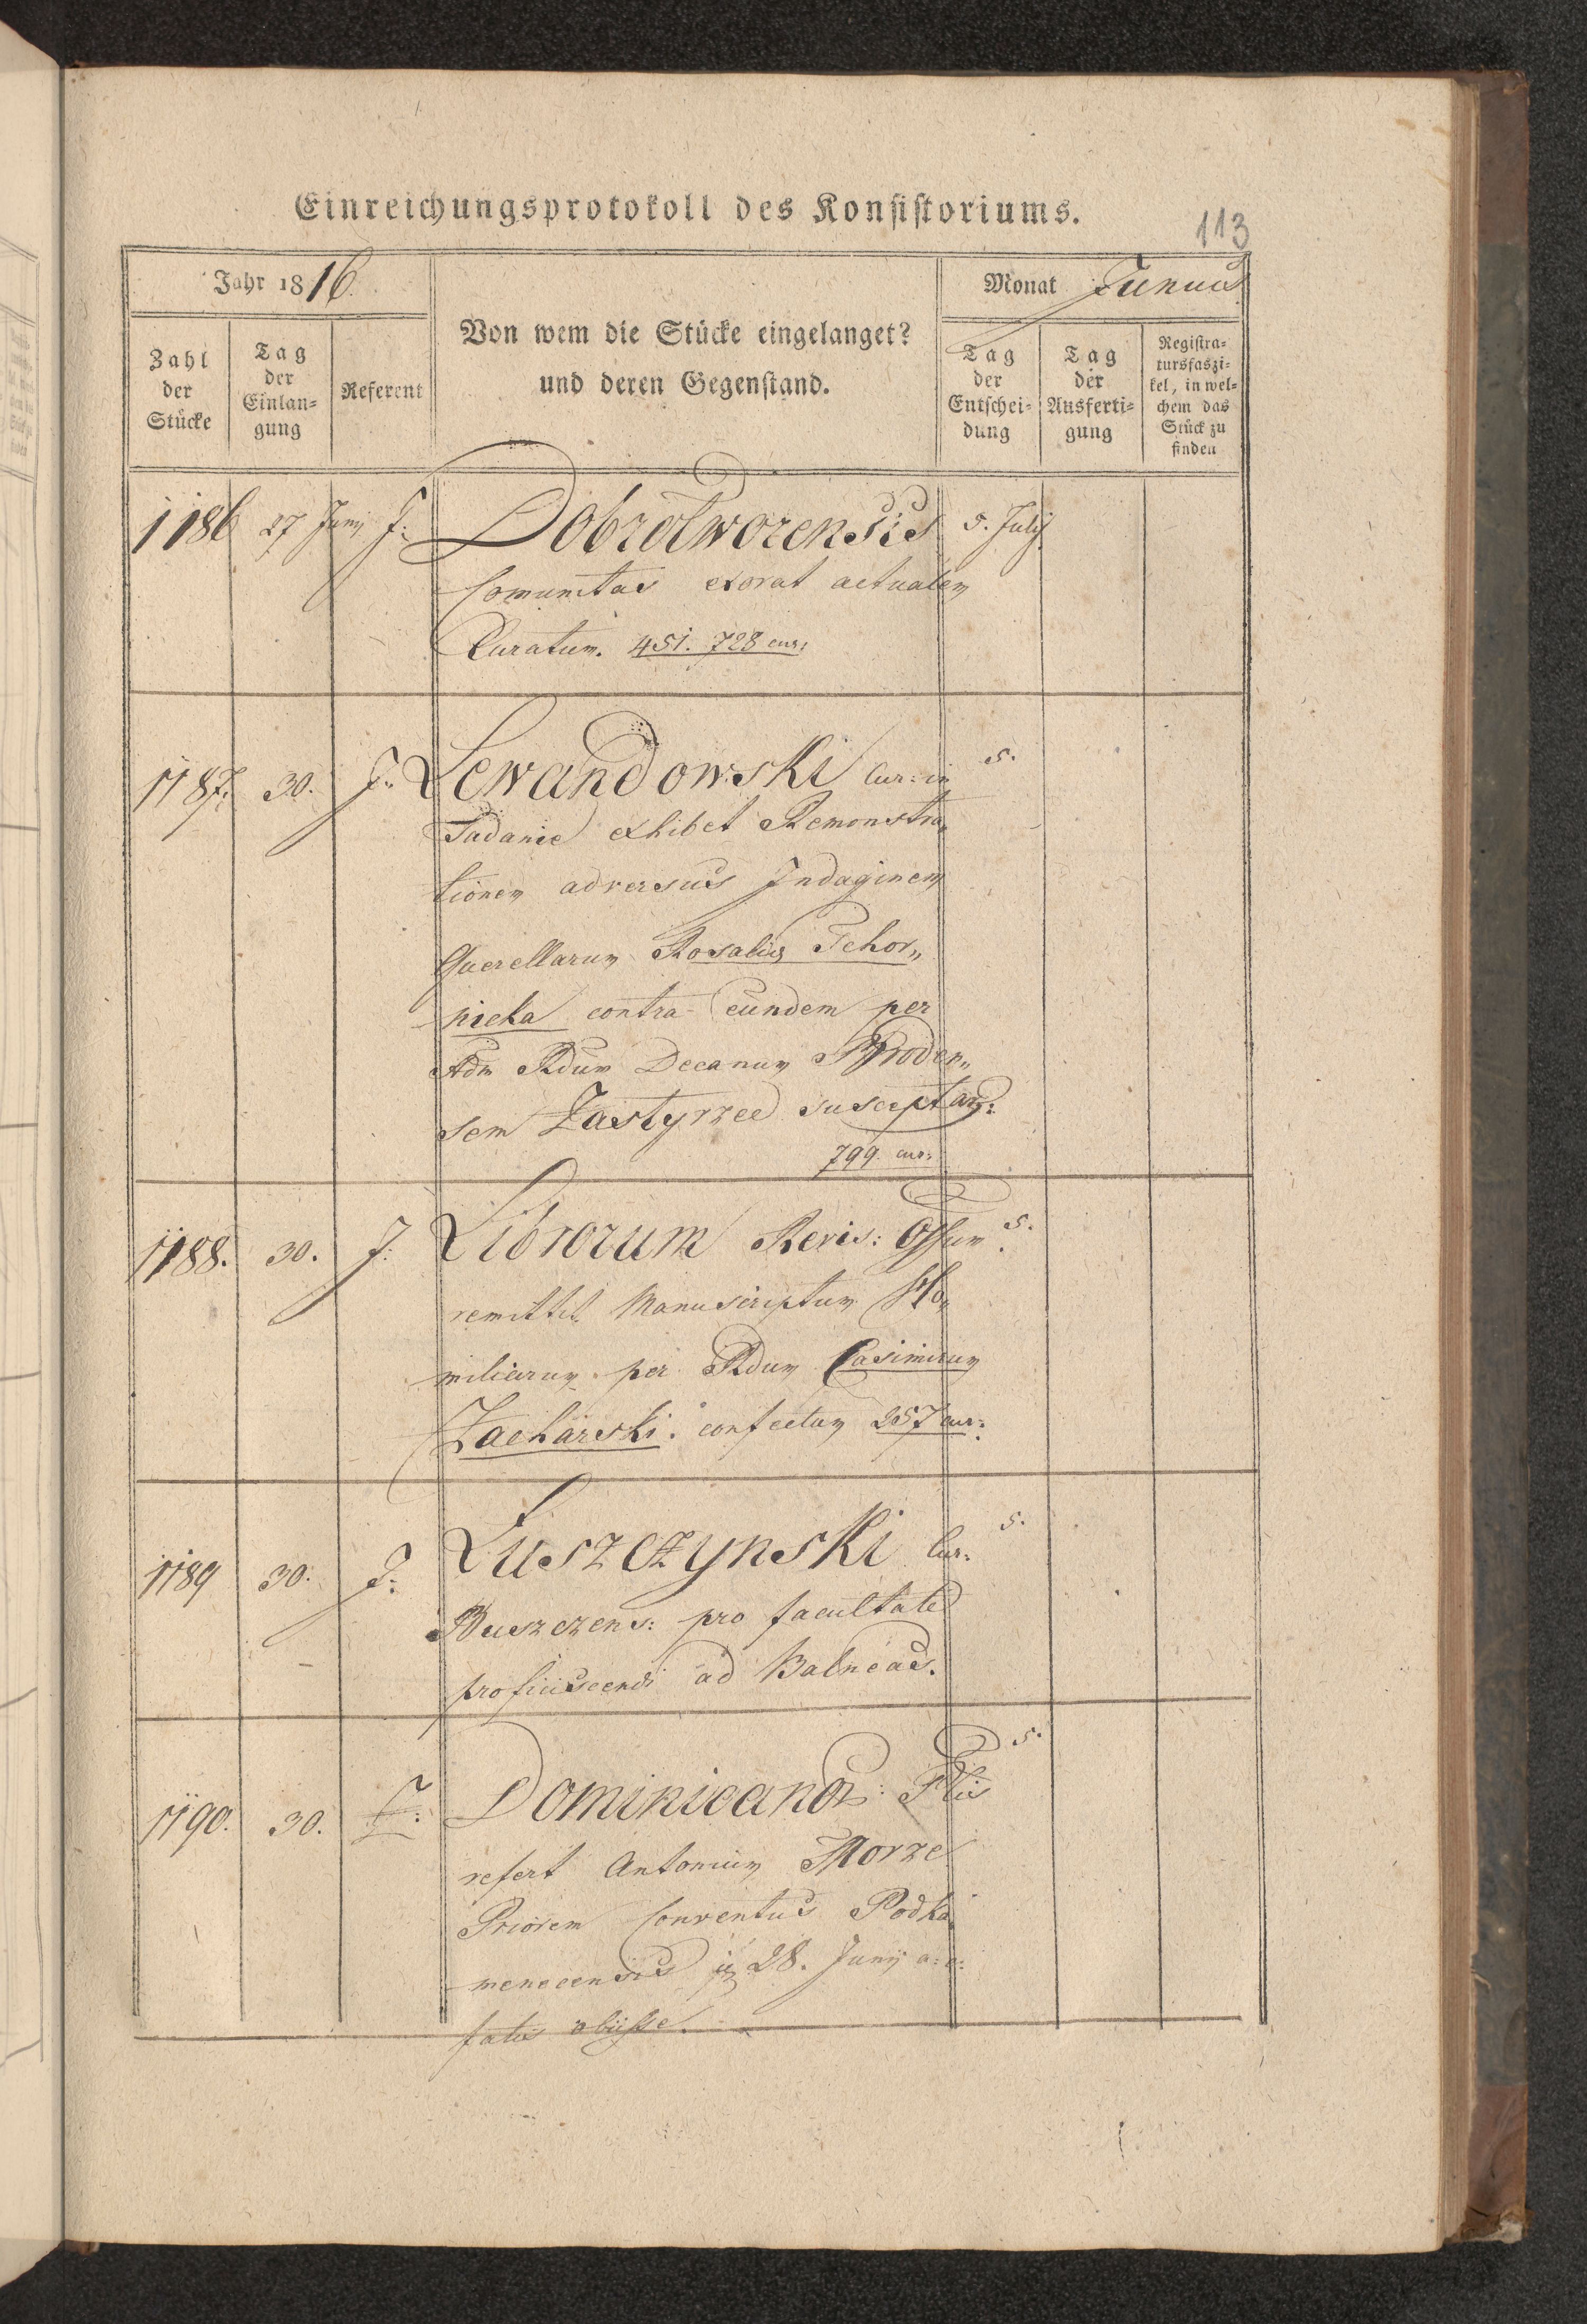 Einreichungsprotokoll des Konsistoriums.
113
Jahr 1816.
Von wem die Stücke eingelanget?
und deren Gegenstand.
Monat Junius
Zahl der Stücke
Tag der Einlan=gung
Referent
Tag der Entschei=dung
Tag der Ausferti=gung
Registra=tursfaszi=kel, in wel=chem das Stück zu finden
1186 27 Junij J: Dobrotworensis 5. July
Comunitas exorat actualem
Curatum. 451. 728 cur:
1187. 30. J: Lewandowski Cur: in 5.
Tadanie exhibet Remonstra„
tionem adversus Indaginem
Querellarum Rosaliæ Tchor„
nicka contra eundem per
Adm Rdum Decanum Broden„
sem Zastyrzec susceptam:
799. cur:
1188. 30. J: Librorum Revis: Offium 5.
remittit Manuscriptum Ho„
miliarum per Rdum Casimirum
Zacharski confectum 257 cur:
1189 30. J: Luszczynski Cur: 5.
Buszczens: pro facultate
proficiscendi ad Balneas.
1190. 30. J: Dominicanor: Plis 5.
refert Antonium Morze
Priorem Conventus Podka
menecensis 28. Junij a: c:
fatis obiisse.